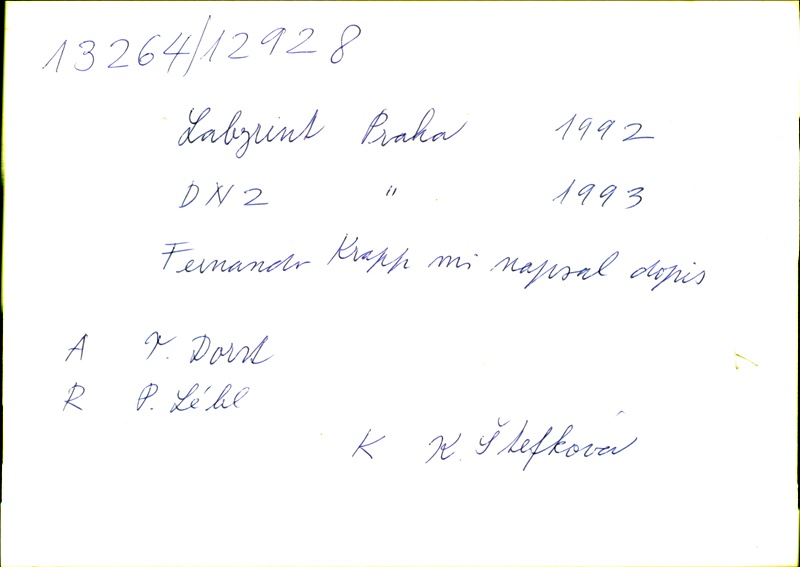 13264/12928
Labyrint Praha 1992
DNZ " 1993
Fernando Krapp mi napsal dopis
A T. Dorst
R P. Lébl
K K. Štefková